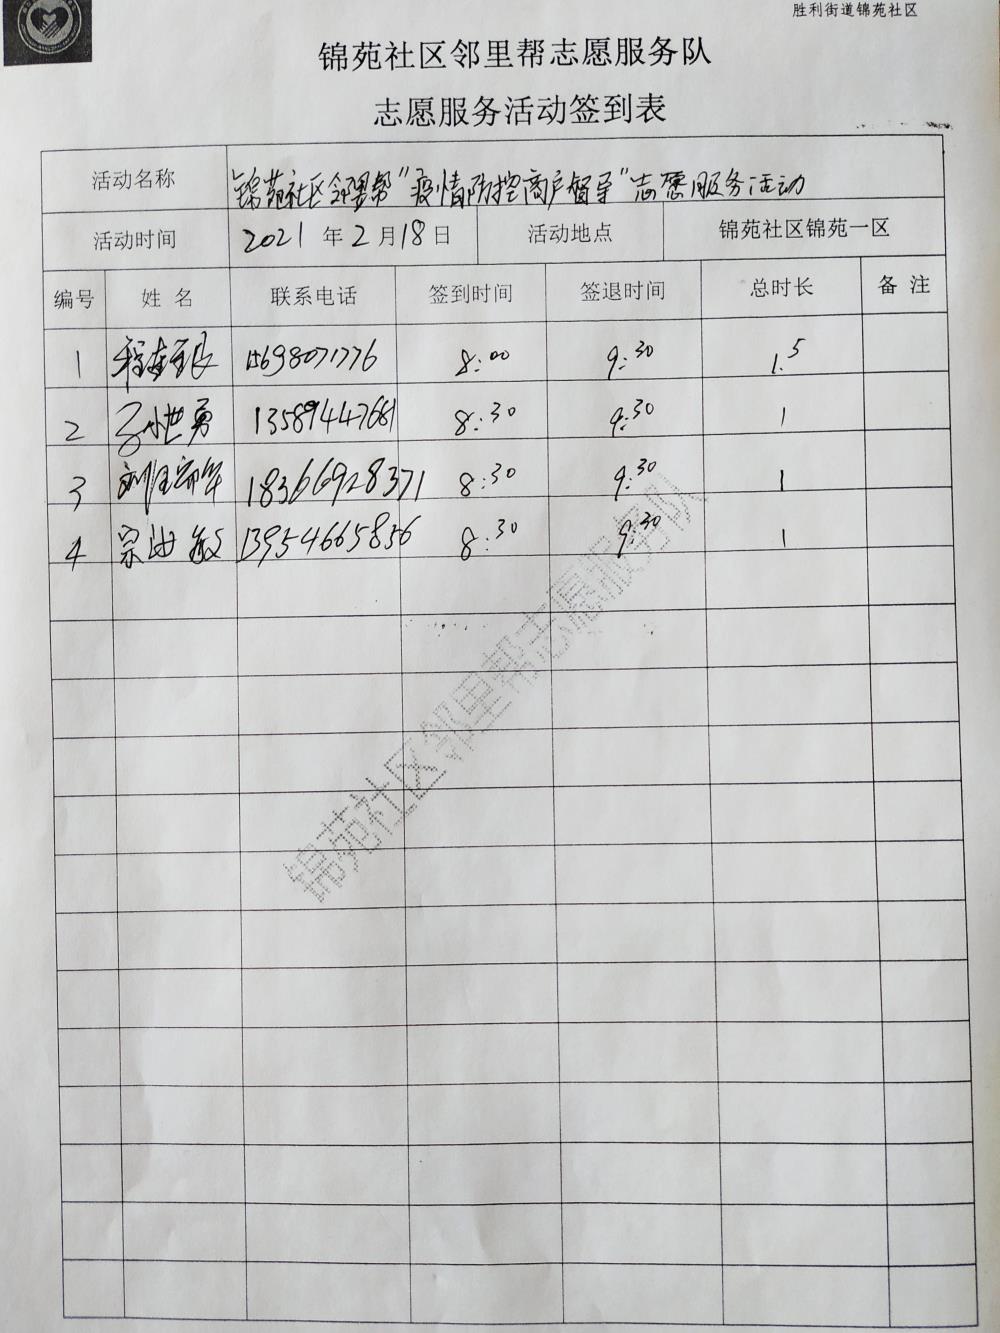 胜利街道锦苑社区
锦苑社区邻里帮志愿服务队
志愿服务活动签到表
活动名称 锦苑社区邻里帮“疫情防控商户督导”志愿服务活动
活动时间 2021年2月18日 活动地点 锦苑社区锦苑一区
编号 姓名 联系电话 签到时间 签退时间 总时长 备注
1 15698071776 8:00 9:30 1.5
2 孙世勇 13589447681 8:30 9:30 1
3 18366928371 8:30 9:30 1
4 13954665856 8:30 9:30 1
锦苑社区邻里帮志愿服务队